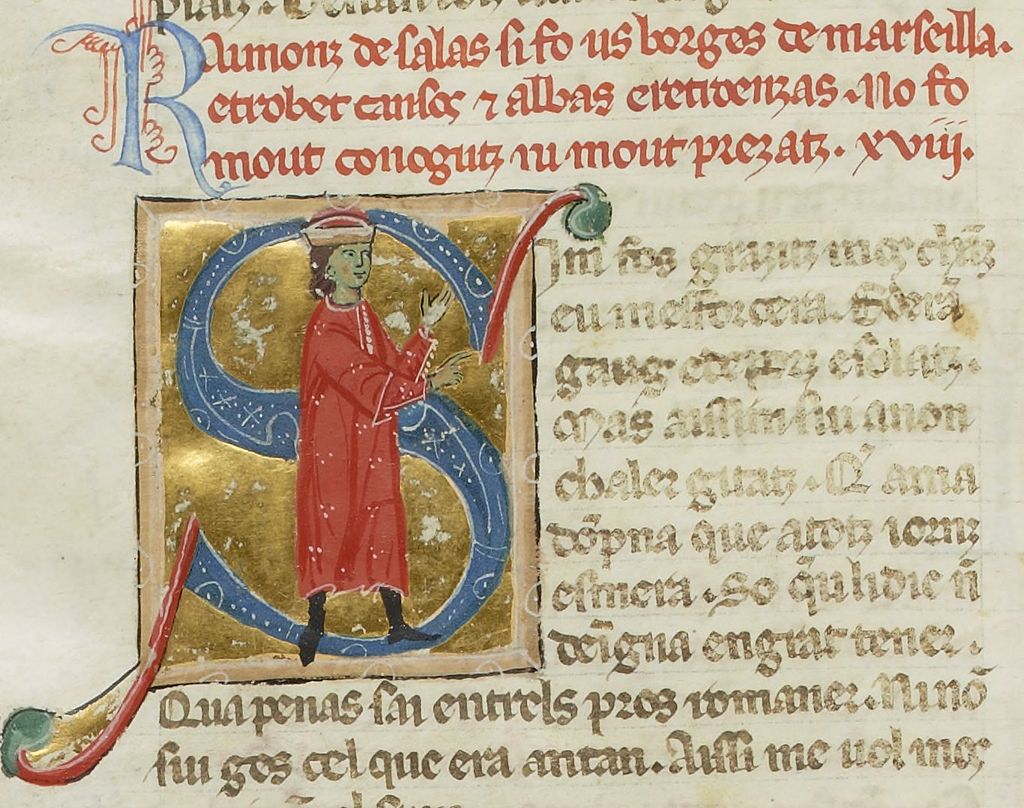 Raimonz de salas si fo us borges de marseilla.
Et trobet cansos ⁊ albas e retroenzas. No fo
mout conogutz ni mout prezatz. xviij.
Sim fos grazitz mos chātz
eu mesforcera.
gaug e solatz.
Mas aissim sui a non
chaler gitatz. Q̄ ma
dōpna que a totz iornz
esmera. So q̄u li dic nō
deigna en grat tener.
Qua penas sai entrels pros romaner. Ni nō
sui ges cel que era antan. Aissi me uol mos